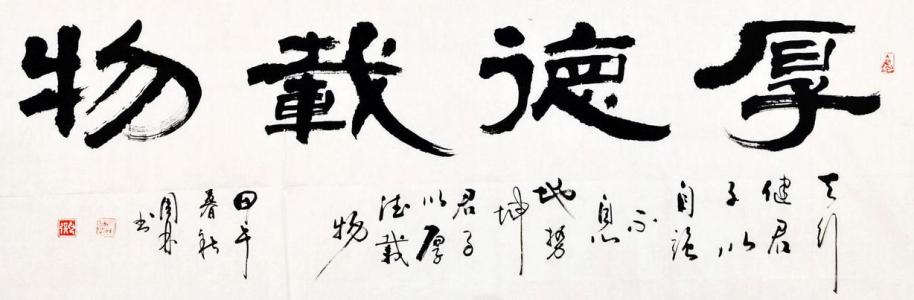 厚德載物
天行
健君
子以
自强
不
息
地势
坤
君子
以厚
德載
物
甲午
暮秋
书